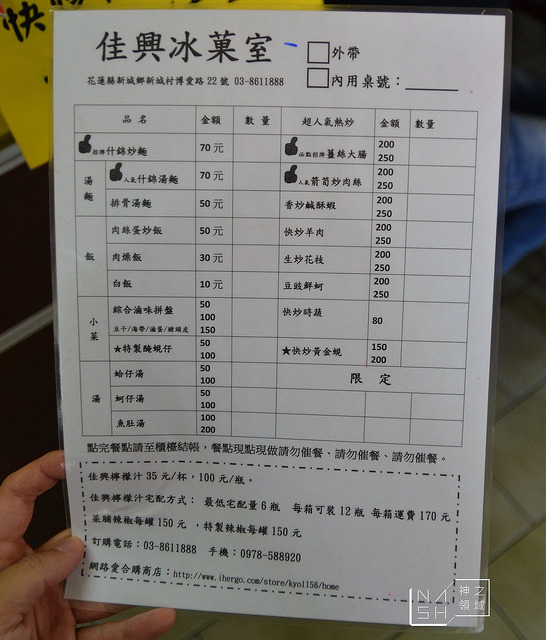 快
佳興冰菓室
外帶
內用桌號：
花蓮縣新城鄉新城村博愛路 22 號 03-8611888
品名 金額 數量 超人氣熱炒 金額 數量
招牌什錦炒麵 70 元 必點招牌薑絲大腸 200 250
湯麵 人氣什錦湯麵 70 元 人氣箭筍炒肉絲 200 250
排骨湯麵 50 元 香炒鹹酥蝦 200 250
飯 肉絲蛋炒飯 50 元 快炒羊肉 200 250
肉燥飯 30 元 生炒花枝 200 250
白飯 10 元 豆豉鮮蚵 200 250
小菜 綜合滷味拼盤 50 100 150 快炒時蔬 80
豆干/海帶/滷蛋/豬頭皮
★特製醃蜆仔 50 100 ★快炒黃金蜆 150 200
湯 蛤仔湯 50 100 限定
蚵仔湯 50 100
魚肚湯 100 200
點完餐點請至櫃檯結帳，餐點現點現做請勿催餐、請勿催餐、請勿催餐。
佳興檸檬汁 35 元/杯，100 元/瓶。
佳興檸檬汁宅配方式： 最低宅配量 6 瓶 每箱可裝 12 瓶 每箱運費 170 元
菜脯辣椒每罐 150 元 ，特製辣椒每罐 150 元
訂購電話：03-8611888 手機：0978-588920
網路愛合購商店：http://www.ihergo.com/store/kyo1156/home
NASH 神之領域